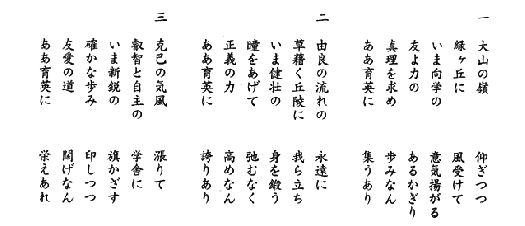 一 大山の嶺 仰ぎつつ
緑ヶ丘に 風受けて
いま向学の 意気揚がる
友よ力の あるかぎり
真理を求め 歩みなん
ああ育英に 集うあり
二 由良の流れの 永遠に
草藉く丘陵に 我ら立ち
いま健壮の 身を鍛う
瞳をあげて 弛むなく
正義の力 高めなん
ああ育英に 誇りあり
三 克己の気風 漲りて
叡智と自主の 学舎に
いま新鋭の 旗かざす
確かな歩み 印しつつ
友愛の道 開げなん
ああ育英に 栄えあれ